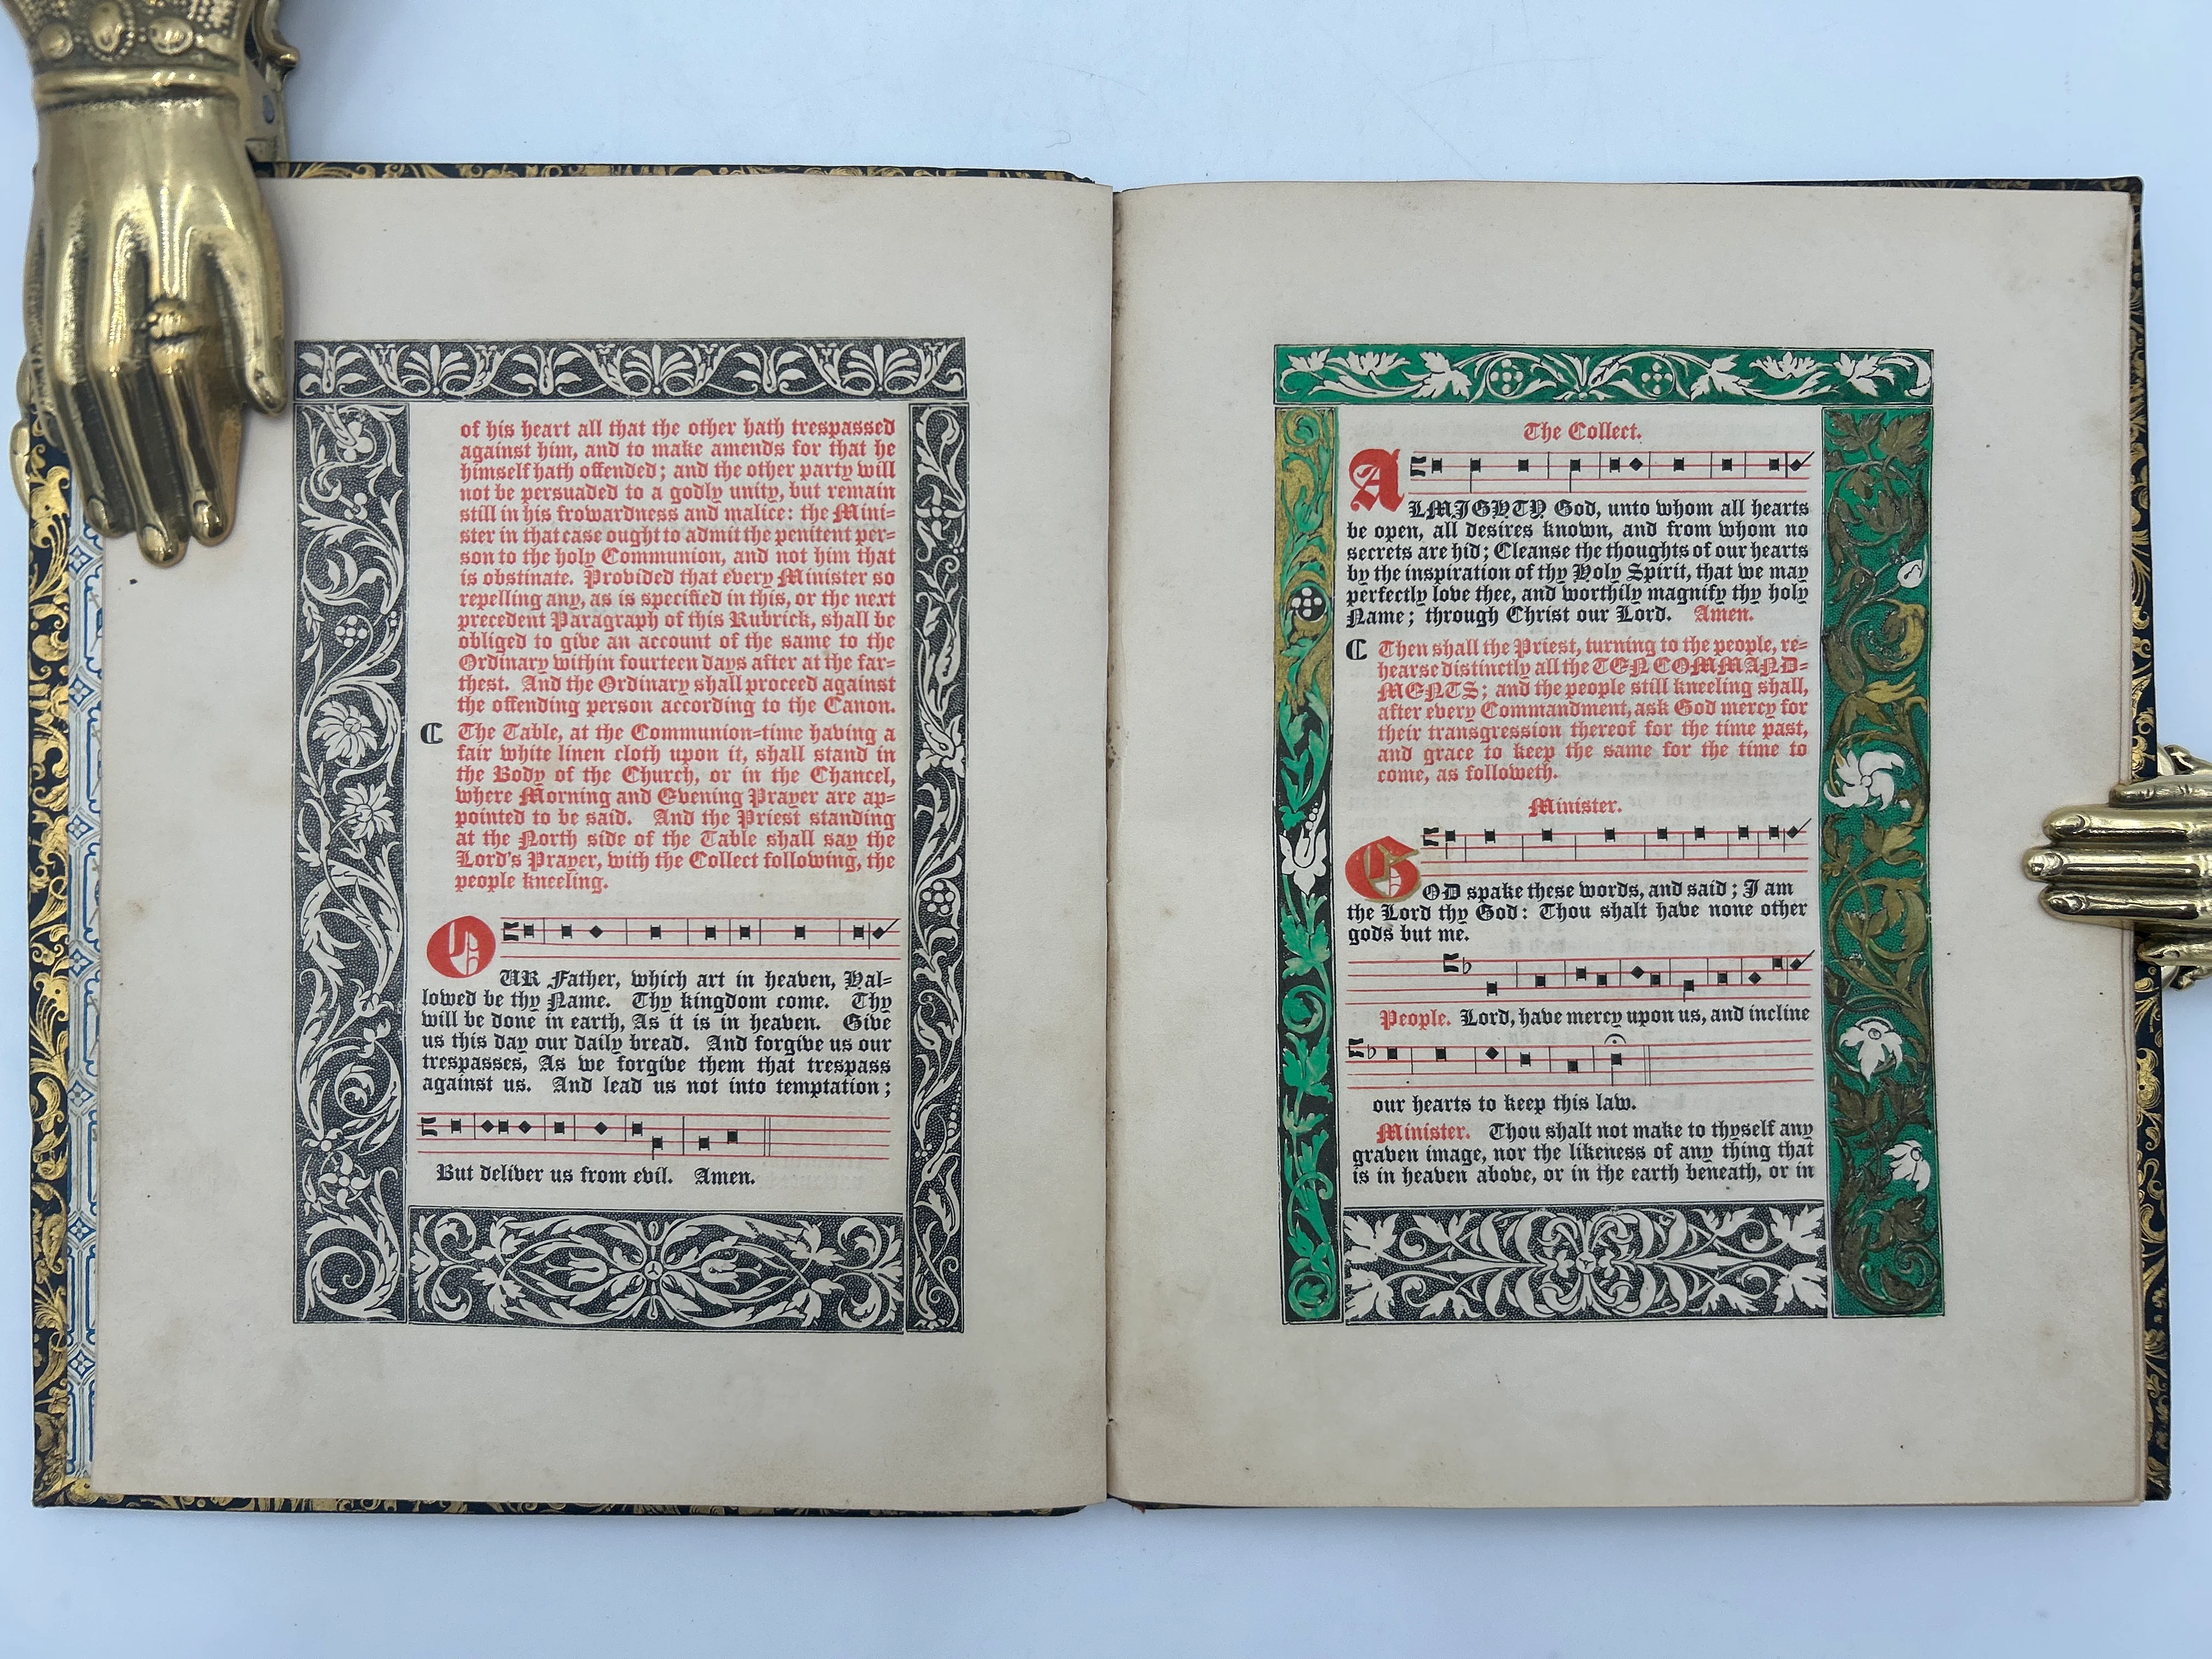 of his heart all that the other hath trespassed
against him, and to make amends for that he
himself hath offended; and the other party will
not be persuaded to a godly unity, but remain
still in his frowardness and malice: the Mini-
ster in that case ought to admit the penitent per-
son to the holy Communion, and not him that
is obstinate. Provided that every Minister so
repelling any, as is specified in this, or the next
precedent Paragraph of this Rubrick, shall be
obliged to give an account of the same to the
Ordinary within fourteen days after at the far-
thest. And the Ordinary shall proceed against
the offending person according to the Canon.
The Table, at the Communion-time having a
fair white linen cloth upon it, shall stand in
the Body of the Church, or in the Chancel,
where Morning and Evening Prayer are ap-
pointed to be said. And the Priest standing
at the North side of the Table shall say the
Lord's Prayer, with the Collect following, the
people kneeling.
OUR Father, which art in heaven, Hal-
lowed be thy Name. Thy kingdom come. Thy
will be done in earth, As it is in heaven. Give
us this day our daily bread. And forgive us our
trespasses, As we forgive them that trespass
against us. And lead us not into temptation;
But deliver us from evil. Amen.
The Collect.
ALMIGHTY God, unto whom all hearts
be open, all desires known, and from whom no
secrets are hid; Cleanse the thoughts of our hearts
by the inspiration of thy Holy Spirit, that we may
perfectly love thee, and worthily magnify thy holy
Name; through Christ our Lord. Amen.
Then shall the Priest, turning to the people, re-
hearse distinctly all the TEN COMMAND-
MENTS; and the people still kneeling shall,
after every Commandment, ask God mercy for
their transgression thereof for the time past,
and grace to keep the same for the time to
come, as followeth.
Minister.
GOD spake these words, and said; I am
the Lord thy God: Thou shalt have none other
gods but me.
People. Lord, have mercy upon us, and incline
our hearts to keep this law.
Minister. Thou shalt not make to thyself any
graven image, nor the likeness of any thing that
is in heaven above, or in the earth beneath, or in